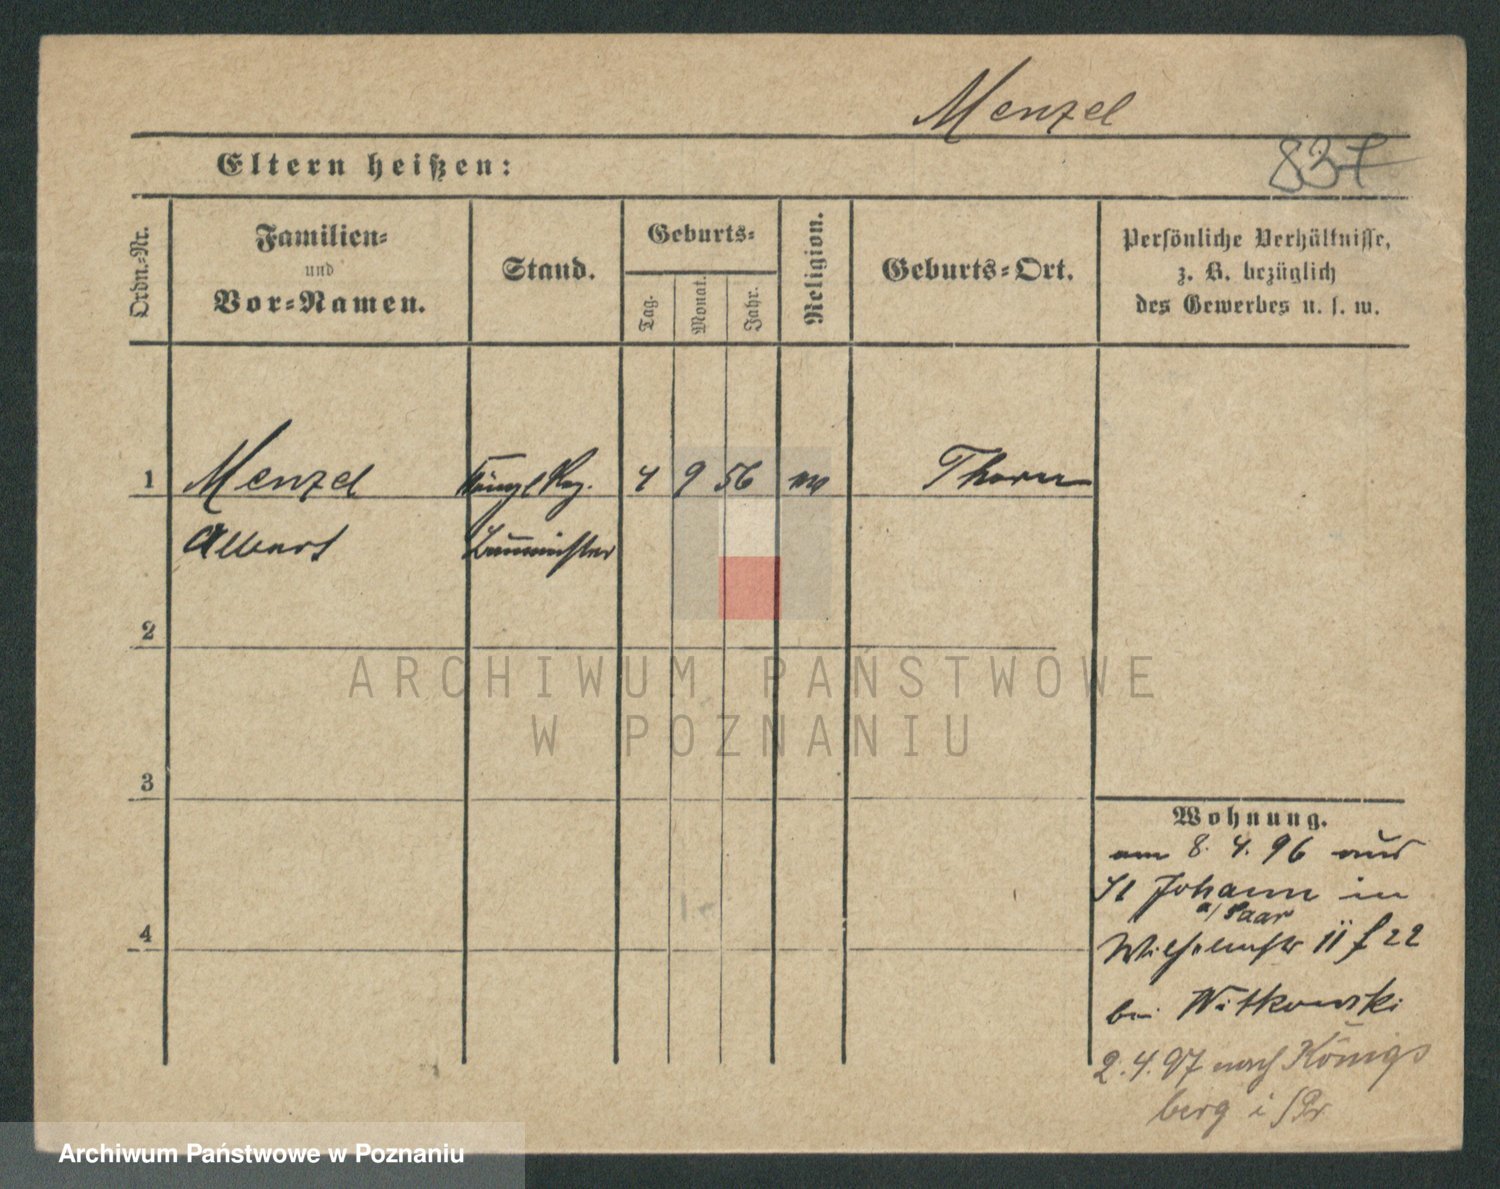 Menzel
837
Eltern heißen:
Ordn.-Nr.
Familien-
und
Vor-Namen.
Stand.
Geburts-
Tag.
Monat.
Jahr.
Religion.
Geburts-Ort.
Persönliche Verhältnisse,
z. B. bezüglich
des Gewerbes u. s. w.
1 Menzel Königl Reg. 4 9 56 Thorn
Albert Baumeister
2
3
4
Wohnung.
am 8. 4. 96 aus
St Johann in
a/Saar
Wilhelmstr 22
bei Witkowski
2.4.97 nach Königs
berg i/Pr
ARCHIWUM PAŃSTWOWE
W POZNANIU
Archiwum Państwowe w Poznaniu